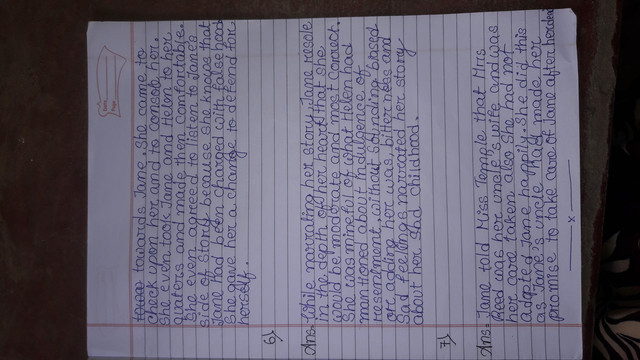 towards Jane. She came to
check upon her and to console her.
She even took Jane and Helen to her
quaters and made them comfortable.
She even agreed to listen to Janes
side of story because she knows that
Jane had been charged with false hood
She gave her a change to defend for
herself.
6)
Ans: While narrating her story, Jane resole
in the depth of her heart that she
will be moderate and most correct.
She was mineful of what Helen had
mentioned about indulgence of
resentment without sounding biased
or adding her was bitterness and
Sad feelings narrated her story
about her sad childhood.
7)
Ans: Jane told Miss Temple that Mrs
Reed was her uncle's wife and was
her care taken also she had not
adopted Jane happily. She did this
as Jane's uncle had made her
promise to take care of Jane after her dead
x